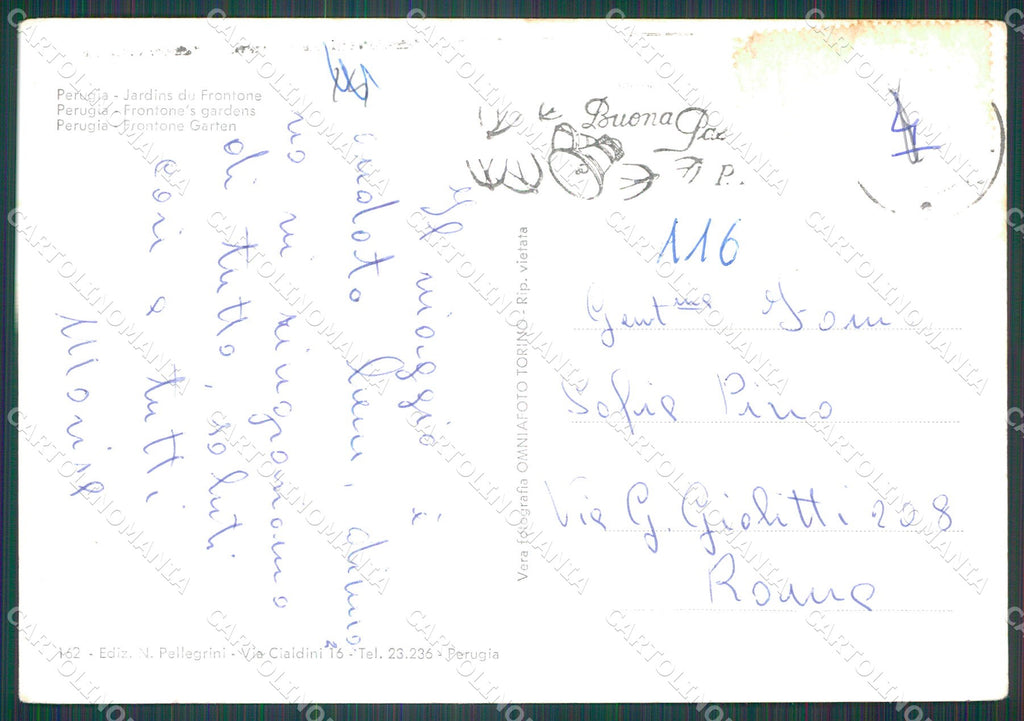 Perugia - Jardins du Frontone
Perugia - Frontone's gardens
Perugia - Frontone Garten
Il viaggio è
andato bene,
vi ringraziamo
di tutto, saluti
cari a tutti
Buona Pa
P.
4
116
Gent.ma Fam
Sofia Pino
Via G. Giolitti 228
Roma
Vera fotografia OMNIAFOTO TORINO - Rip. vietata
162 - Ediz. N. Pellegrini - Via Cialdini 16 - Tel. 23.236 - Perugia
CARTOLINOMANIA